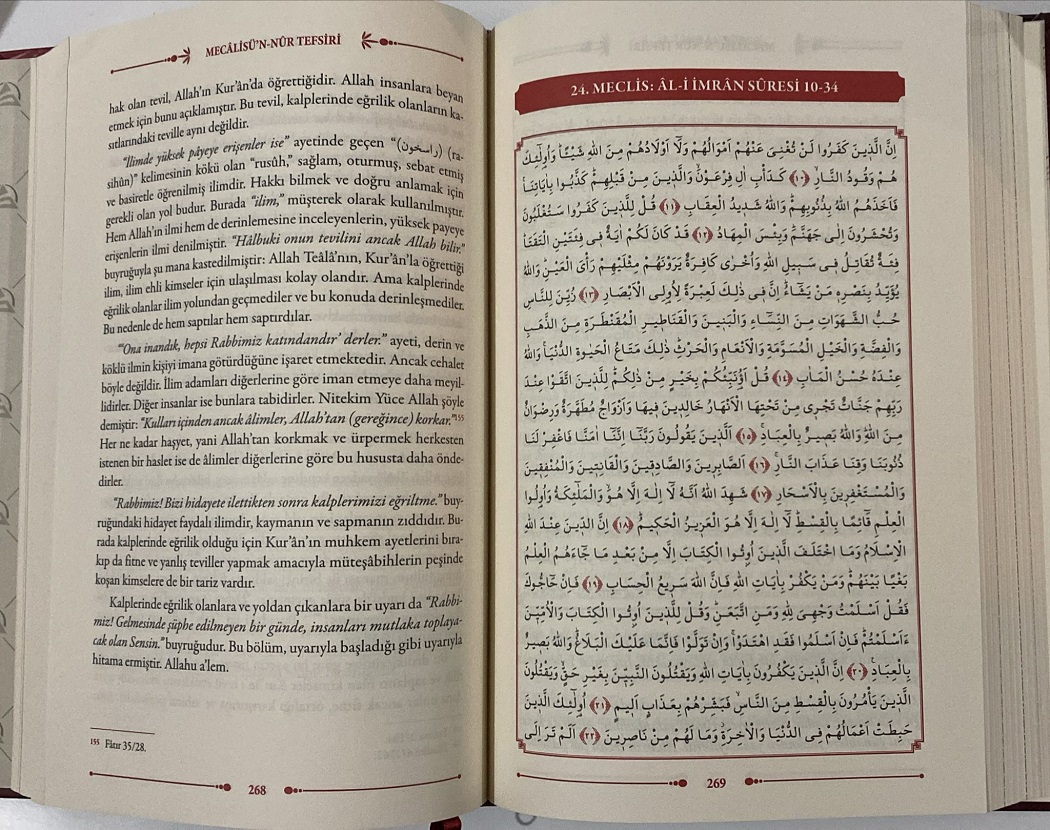 MECÂLİSÜ'N-NÛR TEFSİRİ
hak olan tevil, Allah'ın Kur'ân'da öğrettiğidir. Allah insanlara beyan
etmek için bunu açıklamıştır. Bu tevil, kalplerinde eğrilik olanların ka-
sıtlarındaki teville aynı değildir.
"İlimde yüksek pâyeye erişenler ise" ayetinde geçen "(راسخون) (ra-
sihûn)" kelimesinin kökü olan "rusûh," sağlam, oturmuş, sebat etmiş
ve basiretle öğrenilmiş ilimdir. Hakkı bilmek ve doğru anlamak için
gerekli olan yol budur. Burada "ilim," müşterek olarak kullanılmıştır.
Hem Allah'ın ilmi hem de derinlemesine inceleyenlerin, yüksek payeye
erişenlerin ilmi denilmiştir. "Hâlbuki onun tevilini ancak Allah bilir."
buyruğuyla şu mana kastedilmiştir: Allah Teâlâ'nın, Kur'ân'la öğrettiği
ilim, ilim ehli kimseler için ulaşılması kolay olandır. Ama kalplerinde
eğrilik olanlar ilim yolundan geçmediler ve bu konuda derinleşmediler.
Bu nedenle de hem saptılar hem saptırdılar.
"Ona inandık, hepsi Rabbimiz katındandır' derler." ayeti, derin ve
köklü ilmin kişiyi imana götürdüğüne işaret etmektedir. Ancak cehalet
böyle değildir. İlim adamları diğerlerine göre iman etmeye daha meyil-
lidirler. Diğer insanlar ise bunlara tabidirler. Nitekim Yüce Allah şöyle
demiştir: "Kulları içinden ancak âlimler, Allah'tan (gereğince) korkar."¹⁵⁵
Her ne kadar haşyet, yani Allah'tan korkmak ve ürpermek herkesten
istenen bir haslet ise de âlimler diğerlerine göre bu hususta daha önde-
dirler.
"Rabbimiz! Bizi hidayete ilettikten sonra kalplerimizi eğriltme." buy-
ruğundaki hidayet faydalı ilimdir, kaymanın ve sapmanın zıddıdır. Bu-
rada kalplerinde eğrilik olduğu için Kur'ân'ın muhkem ayetlerini bıra-
kıp da fitne ve yanlış teviller yapmak amacıyla müteşâbihlerin peşinde
koşan kimselere de bir tariz vardır.
Kalplerinde eğrilik olanlara ve yoldan çıkanlara bir uyarı da "Rabbi-
miz! Gelmesinde şüphe edilmeyen bir günde, insanları mutlaka toplaya-
cak olan Sensin." buyruğudur. Bu bölüm, uyarıyla başladığı gibi uyarıyla
hitama ermiştir. Allahu a'lem.
¹⁵⁵ Fâtır 35/28.
268
24. MECLİS: ÂL-İ İMRÂN SÛRESİ 10-34
اِنَّ الَّذ۪ينَ كَفَرُوا لَنْ تُغْنِيَ عَنْهُمْ اَمْوَالُهُمْ وَلَٓا اَوْلَادُهُمْ مِنَ اللّٰهِ شَيْـًٔاۜ وَاُو۬لٰٓئِكَ
هُمْ وَقُودُ النَّارِۙ ﴿١٠﴾ كَدَأْبِ اٰلِ فِرْعَوْنَۙ وَالَّذ۪ينَ مِنْ قَبْلِهِمْۜ كَذَّبُوا بِاٰيَاتِنَاۚ
فَاَخَذَهُمُ اللّٰهُ بِذُنُوبِهِمْۜ وَاللّٰهُ شَد۪يدُ الْعِقَابِ ﴿١١﴾ قُلْ لِلَّذ۪ينَ كَفَرُوا سَتُغْلَبُونَ
وَتُحْشَرُونَ اِلٰى جَهَنَّمَۜ وَبِئْسَ الْمِهَادُ ﴿١٢﴾ قَدْ كَانَ لَكُمْ اٰيَةٌ ف۪ي فِئَتَيْنِ الْتَقَتَاۜ
فِئَةٌ تُقَاتِلُ ف۪ي سَب۪يلِ اللّٰهِ وَاُخْرٰى كَافِرَةٌ يَرَوْنَهُمْ مِثْلَيْهِمْ رَأْيَ الْعَيْنِۜ وَاللّٰهُ
يُؤَيِّدُ بِنَصْرِه۪ مَنْ يَشَٓاءُۜ اِنَّ ف۪ي ذٰلِكَ لَعِبْرَةً لِاُو۬لِي الْاَبْصَارِ ﴿١٣﴾ زُيِّنَ لِلنَّاسِ
حُبُّ الشَّهَوَاتِ مِنَ النِّسَٓاءِ وَالْبَن۪ينَ وَالْقَنَاط۪يرِ الْمُقَنْطَرَةِ مِنَ الذَّهَبِ
وَالْفِضَّةِ وَالْخَيْلِ الْمُسَوَّمَةِ وَالْاَنْعَامِ وَالْحَرْثِۜ ذٰلِكَ مَتَاعُ الْحَيٰوةِ الدُّنْيَاۚ وَاللّٰهُ
عِنْدَهُ حُسْنُ الْمَاٰبِ ﴿١٤﴾ قُلْ اَؤُ۬نَبِّئُكُمْ بِخَيْرٍ مِنْ ذٰلِكُمْۜ لِلَّذ۪ينَ اتَّقَوْا عِنْدَ
رَبِّهِمْ جَنَّاتٌ تَجْر۪ي مِنْ تَحْتِهَا الْاَنْهَارُ خَالِد۪ينَ ف۪يهَا وَاَزْوَاجٌ مُطَهَّرَةٌ وَرِضْوَانٌ
مِنَ اللّٰهِۜ وَاللّٰهُ بَص۪يرٌ بِالْعِبَادِۚ ﴿١٥﴾ اَلَّذ۪ينَ يَقُولُونَ رَبَّنَٓا اِنَّنَٓا اٰمَنَّا فَاغْفِرْ لَنَا
ذُنُوبَنَا وَقِنَا عَذَابَ النَّارِۚ ﴿١٦﴾ اَلصَّابِر۪ينَ وَالصَّادِق۪ينَ وَالْقَانِت۪ينَ وَالْمُنْفِق۪ينَ
وَالْمُسْتَغْفِر۪ينَ بِالْاَسْحَارِ ﴿١٧﴾ شَهِدَ اللّٰهُ اَنَّهُ لَٓا اِلٰهَ اِلَّا هُوَۙ وَالْمَلٰٓئِكَةُ وَاُو۬لُوا
الْعِلْمِ قَٓائِمًا بِالْقِسْطِۜ لَٓا اِلٰهَ اِلَّا هُوَ الْعَز۪يزُ الْحَك۪يمُۜ ﴿١٨﴾ اِنَّ الدّ۪ينَ عِنْدَ اللّٰهِ
الْاِسْلَامُ۠ وَمَا اخْتَلَفَ الَّذ۪ينَ اُو۫تُوا الْكِتَابَ اِلَّا مِنْ بَعْدِ مَا جَٓاءَهُمُ الْعِلْمُ
بَغْيًا بَيْنَهُمْۜ وَمَنْ يَكْفُرْ بِاٰيَاتِ اللّٰهِ فَاِنَّ اللّٰهَ سَر۪يعُ الْحِسَابِ ﴿١٩﴾ فَاِنْ حَٓاجُّوكَ
فَقُلْ اَسْلَمْتُ وَجْهِيَ لِلّٰهِ وَمَنِ اتَّبَعَنِۜ وَقُلْ لِلَّذ۪ينَ اُو۫تُوا الْكِتَابَ وَالْاُمِّيّ۪نَ
ءَاَسْلَمْتُمْۜ فَاِنْ اَسْلَمُوا فَقَدِ اهْتَدَوْاۚ وَاِنْ تَوَلَّوْا فَاِنَّمَا عَلَيْكَ الْبَلَاغُۜ وَاللّٰهُ بَص۪يرٌ
بِالْعِبَادِ۟ ﴿٢٠﴾ اِنَّ الَّذ۪ينَ يَكْفُرُونَ بِاٰيَاتِ اللّٰهِ وَيَقْتُلُونَ النَّبِيّ۪نَ بِغَيْرِ حَقٍّۙ وَيَقْتُلُونَ
الَّذ۪ينَ يَأْمُرُونَ بِالْقِسْطِ مِنَ النَّاسِۙ فَبَشِّرْهُمْ بِعَذَابٍ اَل۪يمٍ ﴿٢١﴾ اُو۬لٰٓئِكَ الَّذ۪ينَ
حَبِطَتْ اَعْمَالُهُمْ فِي الدُّنْيَا وَالْاٰخِرَةِۘ وَمَا لَهُمْ مِنْ نَاصِر۪ينَ ﴿٢٢﴾ اَلَمْ تَرَ اِلَى
269